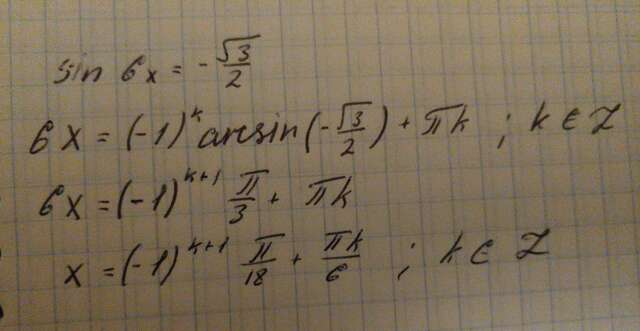 sin 6x = -√3/2
6x = (-1)^k arcsin(-√3/2) + πk ; k ∈ Z
6x = (-1)^{k+1} π/3 + πk
x = (-1)^{k+1} π/18 + πk/6 ; k ∈ Z